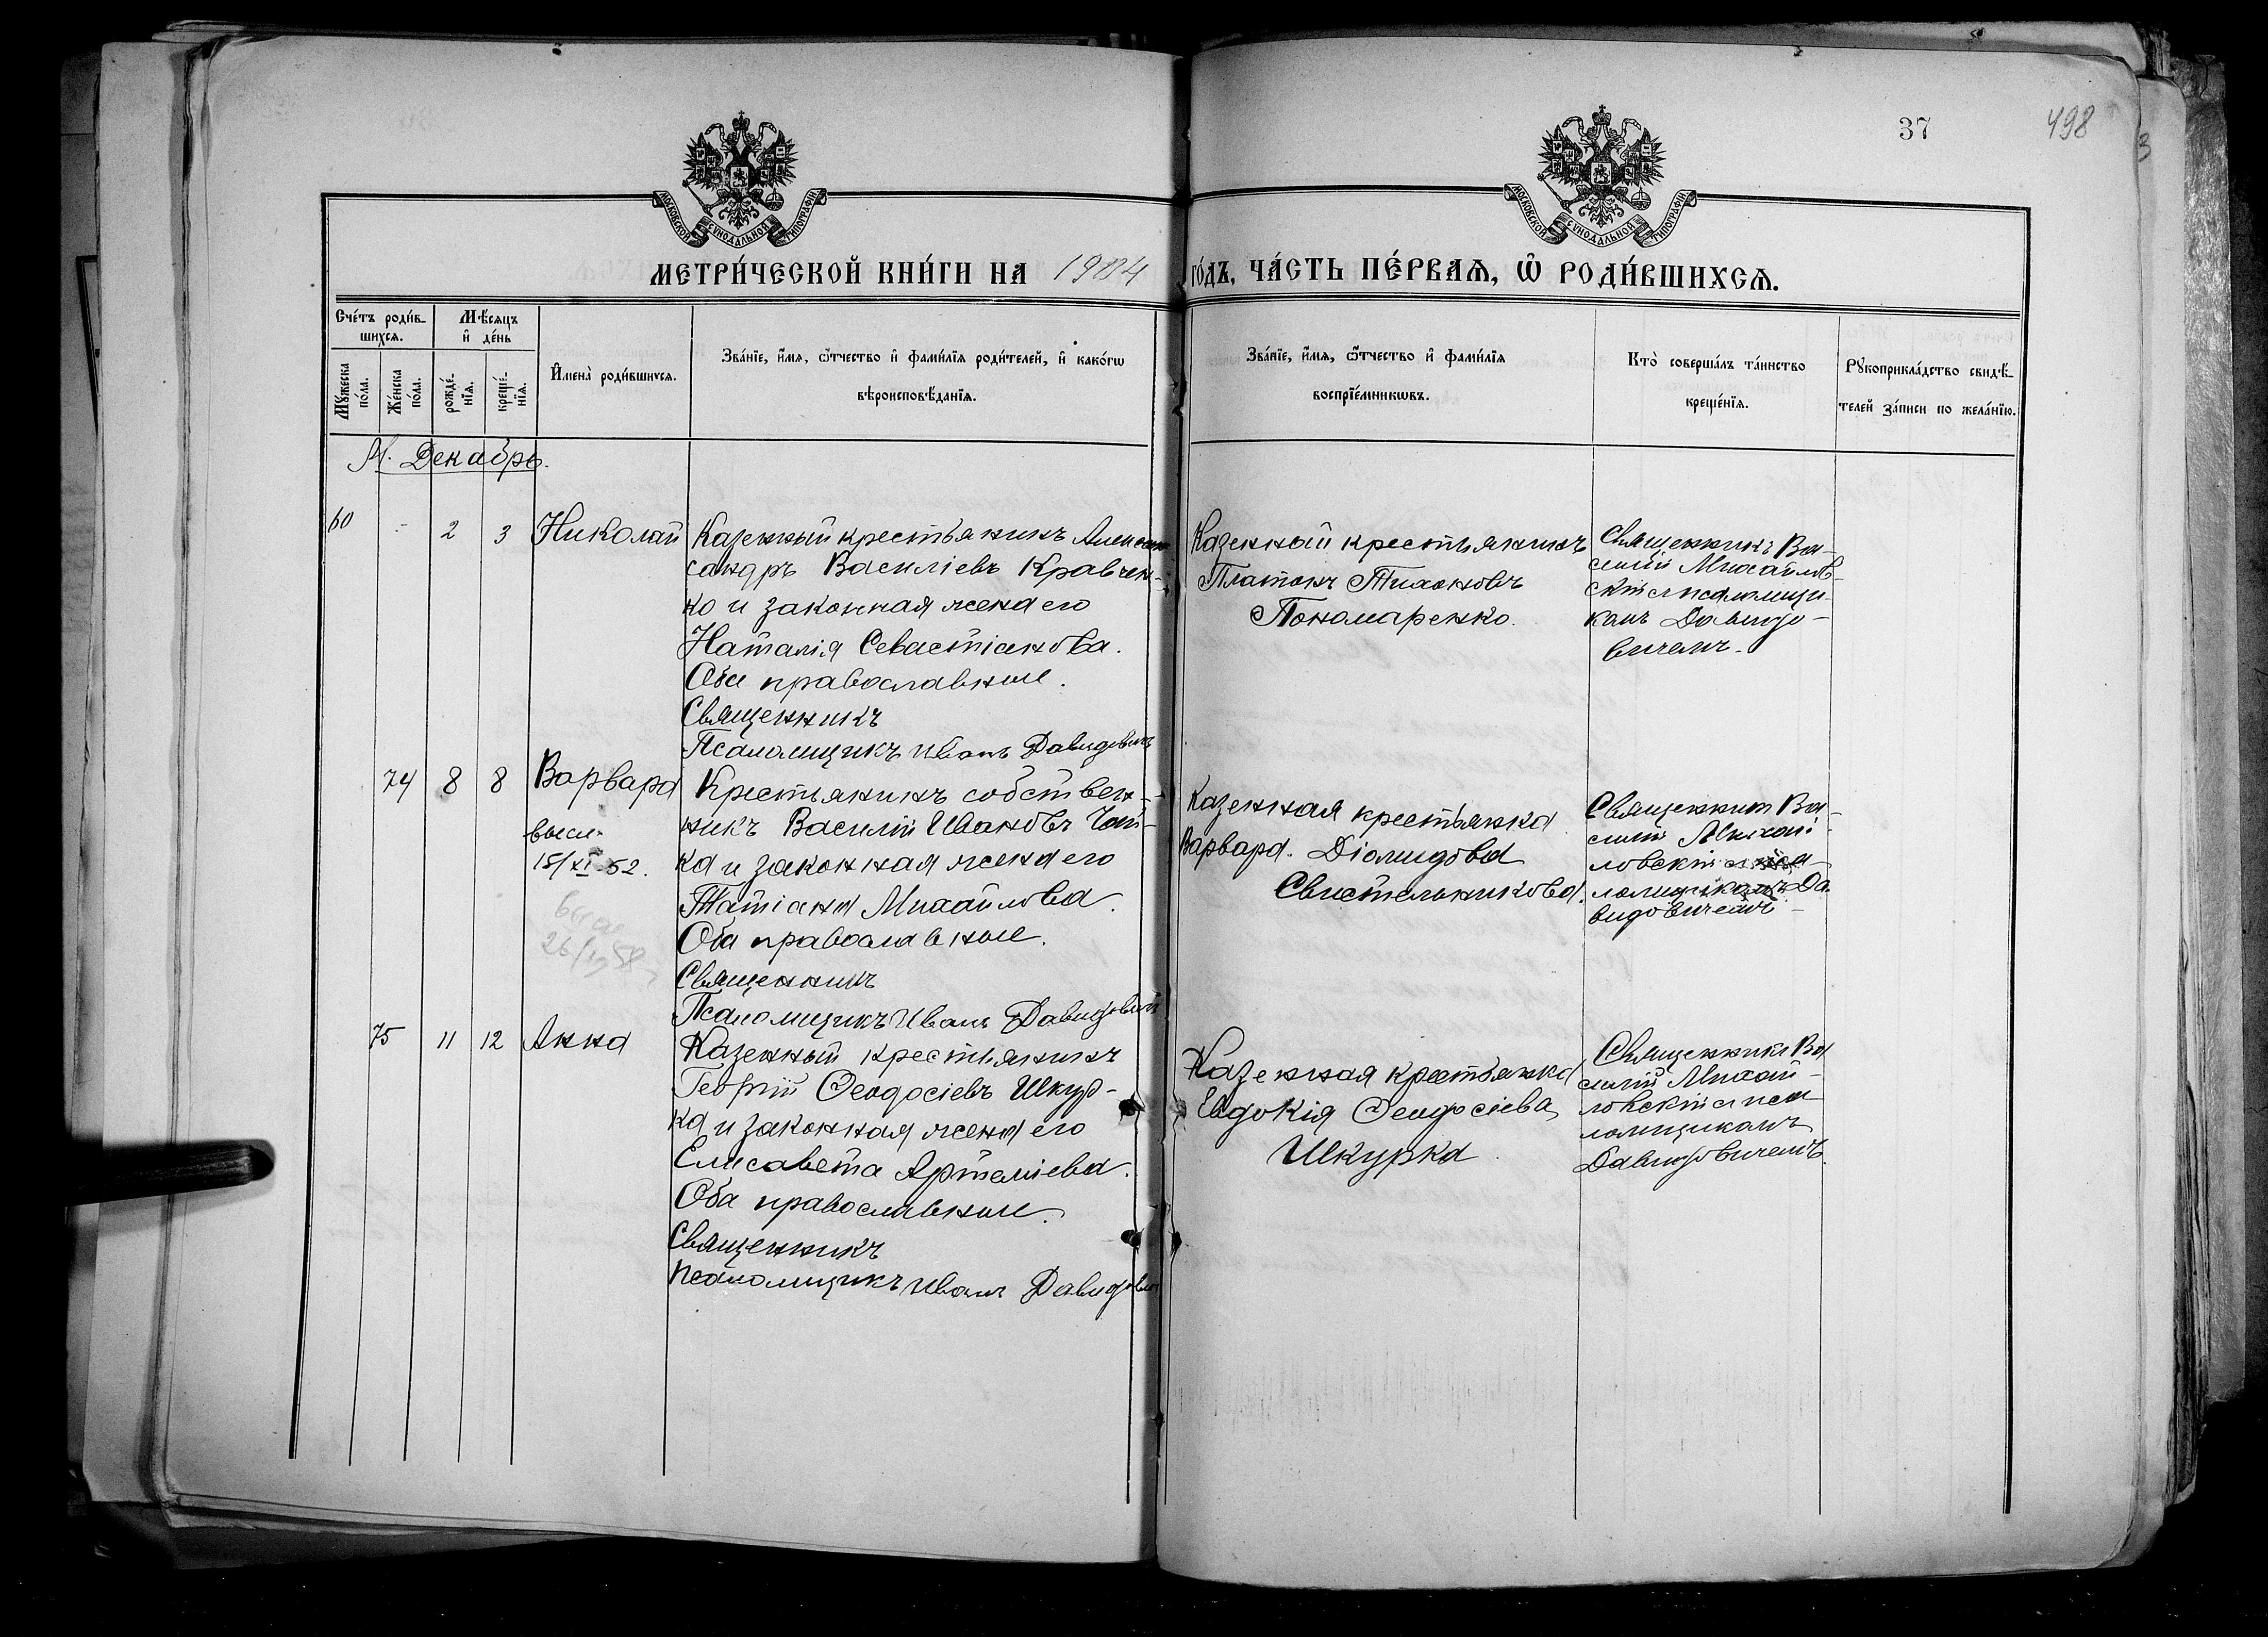 37
498
3
МОСКОВСКОЙ СУНОДАЛЬНОЙ ТИПОГРАФІИ
МОСКОВСКОЙ СУНОДАЛЬНОЙ ТИПОГРАФІИ
МЕТРИ́ЧЕСКОЙ КНИ́ГИ НА 1904 ГО́ДЪ, ЧА́СТЬ ПЕ́РВАѦ, Ѡ҆ РОДИ́ВШИХСѦ.
Сче́тъ роди́в-
шихсѧ.
Мꙋ́жеска по́ла.
Же́нска по́ла.
Мѣ́сѧцъ
и҆ де́нь
рожде́-
нїѧ.
креще́-
нїѧ.
И҆мена̀ роди́вшихсѧ.
Зва́нїе, и҆́мѧ, ѻ҆́тчество и҆ фами́лїѧ роди́телей, и҆ како́гѡ
вѣроисповѣ́данїѧ.
Зва́нїе, и҆́мѧ, ѻ҆́тчество и҆ фами́лїѧ
воспрїе́мникѡвъ.
Кто̀ соверша́лъ та́инство
креще́нїѧ.
Рꙋкоприкла́дство свидѣ́-
телей за́писи по жела́нїю.
М. Декабрь.
60 - 2 3 Николай
Казенный крестьянинъ Алек
сандръ Василіевъ Кравчен-
ко и законная жена его
Наталія Севастіанова.
Оба православные.
Священникъ
Псаломщикъ Иванъ Давидовичъ
Казенный крестьянинъ
Платонъ Тихоновъ
Пономаренко.
Священникъ Ва-
силій Михайлов-
скій с псаломщи-
комъ Давидо-
вичемъ.
74 8 8 Варвара
высл.
15/XI 52.
высл
26/ 58
Крестьянинъ собствен-
никъ Василій Ивановъ Чай-
ка и законная жена его
Татіана Михайлова.
Оба православные.
Священникъ
Псаломщикъ Иванъ Давидовичъ
Казенная крестьянка
Варвара Діомидова
Свистельникова.
Священникъ Ва-
силій Михай-
ловскій с пса-
ломщикомъ Да-
видовичемъ
75 11 12 Анна
Казенный крестьянинъ
Георгій Ѳеодосіевъ Шкур-
ка и законная жена его
Елисавета Артеміева.
Оба православные.
Священникъ
Псаломщикъ Иванъ Давидович
Казенная крестьянка
Евдокія Ѳеодосіева
Шкурка
Священникъ Ва
силій Михай-
ловскій с пса
ломщикомъ
Давидовичемъ.